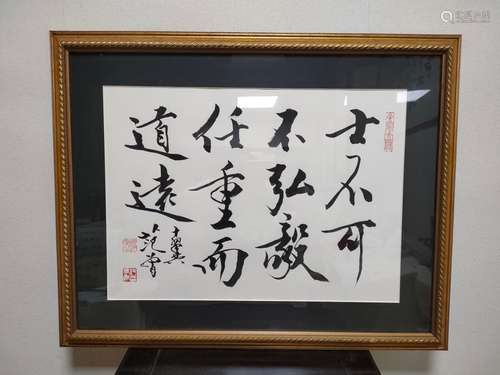 士不可
不弘毅
任重而
道远
十翼
范曾